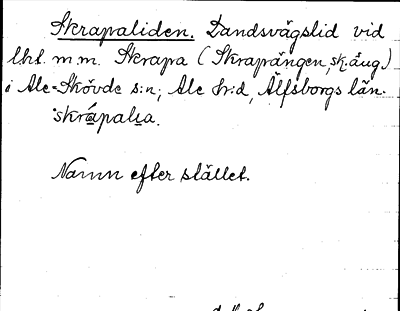 Skrapaliden. Landsvägslid vid
lht. m.m. Skrapa (Skrapängen, sk. äng)
i Ale-Skövde s:n, Ale h:d, Älfsborgs län.
skràpalıa.
Namn efter stället.